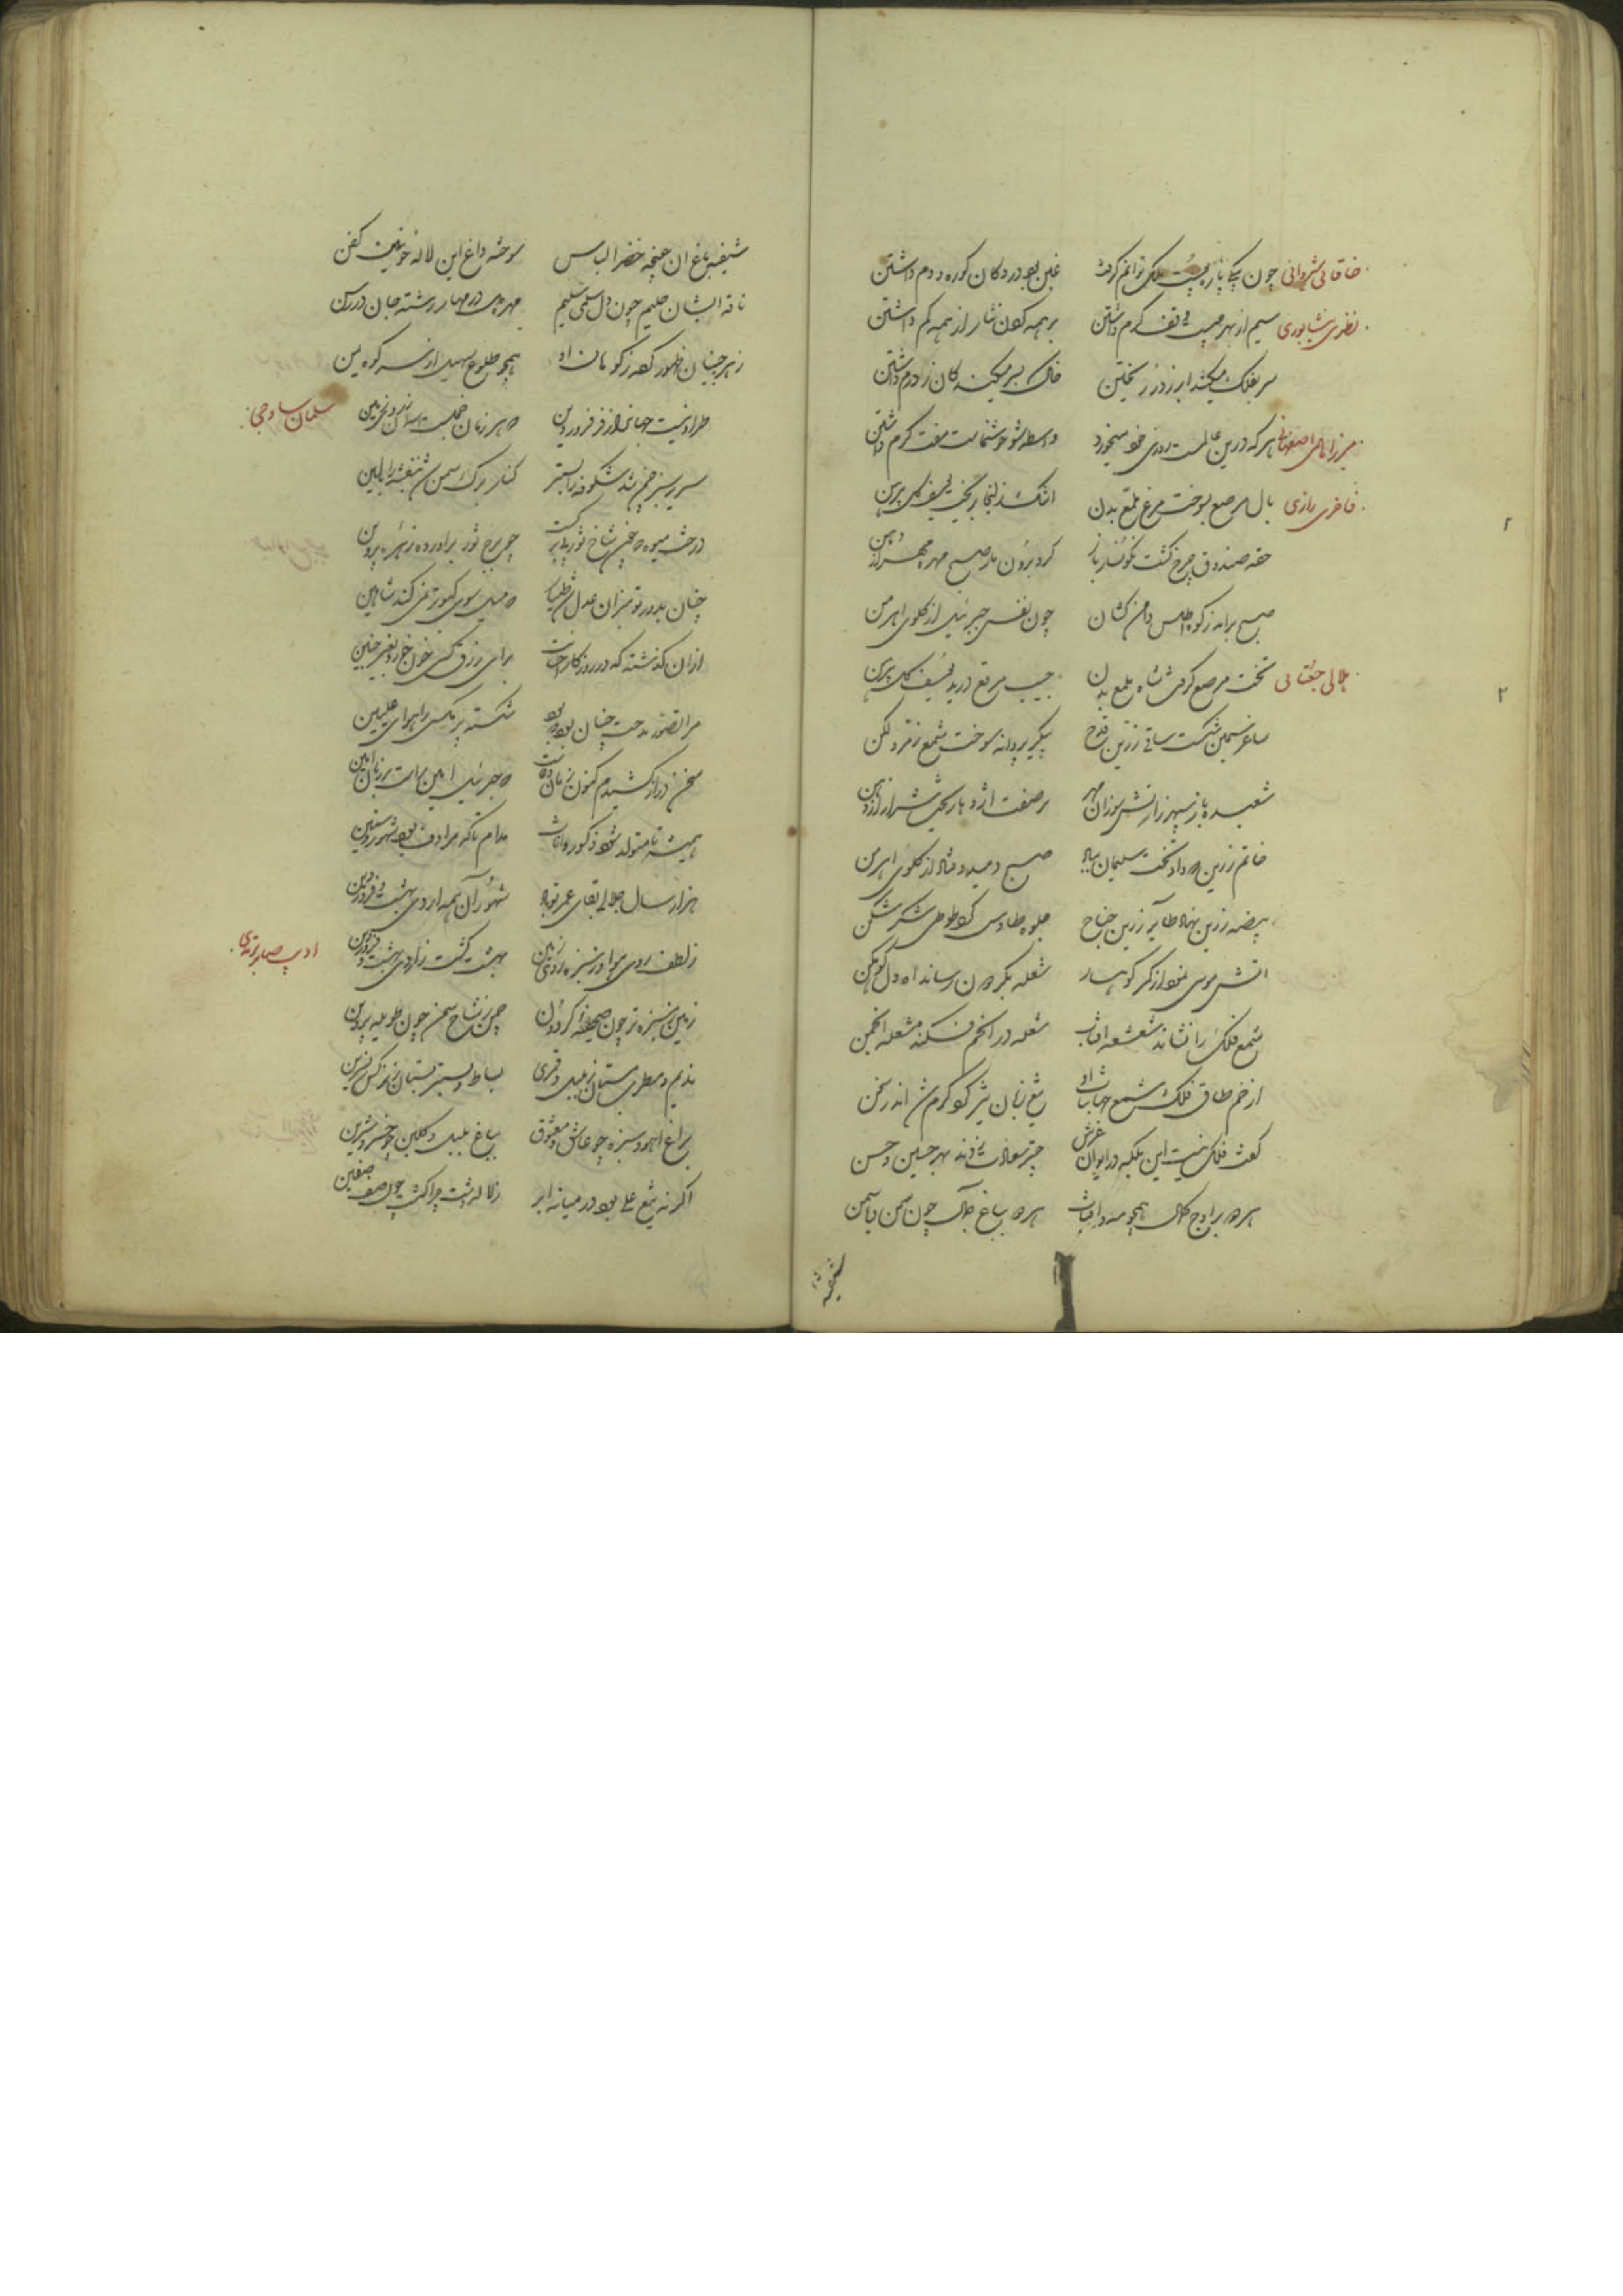 خاقانی شروانی چون یکی پاره پوست ملک توانم گرفت غبن بود در دکان کوره و دم داشتن
نظیری نشابوری سیم از بهر چیست در تف کرم داشتن بر همه کون نثار از همه کم داشتن
سر بفلک میکشد ابر ز در ریختن خاک بسر میکند کان ز درم داشتن
میرزا اصفهانی هر که درین عالمست روزی خود میخورد واسطه شو خوشنماست مفت کرم داشتن
فاخری رازی بال مرصع بسوخت مرغ ملمع بدن اشک زلیخا بریخت یوسف گل پیرهن
حقه صندوق چرخ گشت نگونسار باز کرد برون مار صبح مهره مهر از دهن
صبح برآمد ز کوه دامن اطلس کشان چون نفس جبرئیل از گلوی اهرمن
هلالی جغتایی تخت مرصع گرفت شاه ملمع بدن جیب مرقع درید یوسف گل پیرهن
ساغر سیمین شکست ساقی زرین قدح پیکر پروانه سوخت شمع زمرد لگن
شعبده باز سپهر ز آتش سوزان مهر بر صفت اژدها ریخت شرار از دهن
خاتم زرین مهر داد تخت سلیمان بباد صبح دمید و فتاد از گلوی اهرمن
بیضه زرین نهاد طایر زرین جناح جلوه طاوس کرد طوطی شکر شکن
آتش موسی نمود از کمر کوهسار شعله بگردون رساند آه دل کوهکن
شمع فلک را نشاند شعشعه آفتاب شعله در انجم فکند مشعله انجمن
از خم طاق فلک شمع جهانتاب او تیغ زبان تیز کرد گرم شد اندر سخن
گفت فلک نیست این بلکه در ایوان عرش چتر سعادت زدند بهر حسین و حسن
هر دو بر اوج کمال همچو مه و آفتاب هر دو بباغ جمال چون سمن و یاسمن
شیفته
شیفته باغ آن غنچه خضرا لباس سوخته داغ این لاله خونین کفن
ناقه ایشان حلیم چون دل سلمی سلیم مهره در مهار رشته جان در رسن
زهر جبیان ظهور کوهان او همچو طلوع سهیل از سر کوه یمن
سلمان ساوجی طراوتیست جهان را ز فر فروردین که هر زمان خجلست آسمان ز روی زمین
سریر سبز چمن شد شکوفه را بستر کنار برگ سمن شد بنفشه را بالین
درخت میوه شاخ ثور چو برج ثور برآورده زهره و پروین
چنان بدور تو میزان عدل شد طیار که میل سوی کبوتر نمی کند شاهین
از آن گذشته که در روزگار احسانت برای رزق کسی خون خورد بغیر جنین
مرا تصور مدحت چنان بود که بود شکسته پر مگسی را هوای علیین
سخن دراز کشیدم کنون زمان دعاست که جبرئیل امین راست بر زبان آمین
همیشه تا متولد شود ذکور و اناث مدام تا که مرادف بود شهور و سنین
هزار سال جلالی بقای عمر تو باد شهور آن همه اردیبهشت و فروردین
ادیب صابر ترمذی ز لطف روی هوا و ز سبزه روی زمین بهشت گشت ز اردیبهشت و فروردین
زمین سبزه تر چون صحیفه گردون چمن ز شاخ سمن چون طویله پروین
ندیم و مطرب بستان ز بلبل و قمری بساط و بستر بستان ز نرگس و نسرین
براغ آهو و سبزه چو عاشق و معشوق بباغ بلبل و گلبن چو خسرو و شیرین
اگر نه تیغ علی بود در میانه ابر ز لاله دشت چرا گشت چون صف صفین